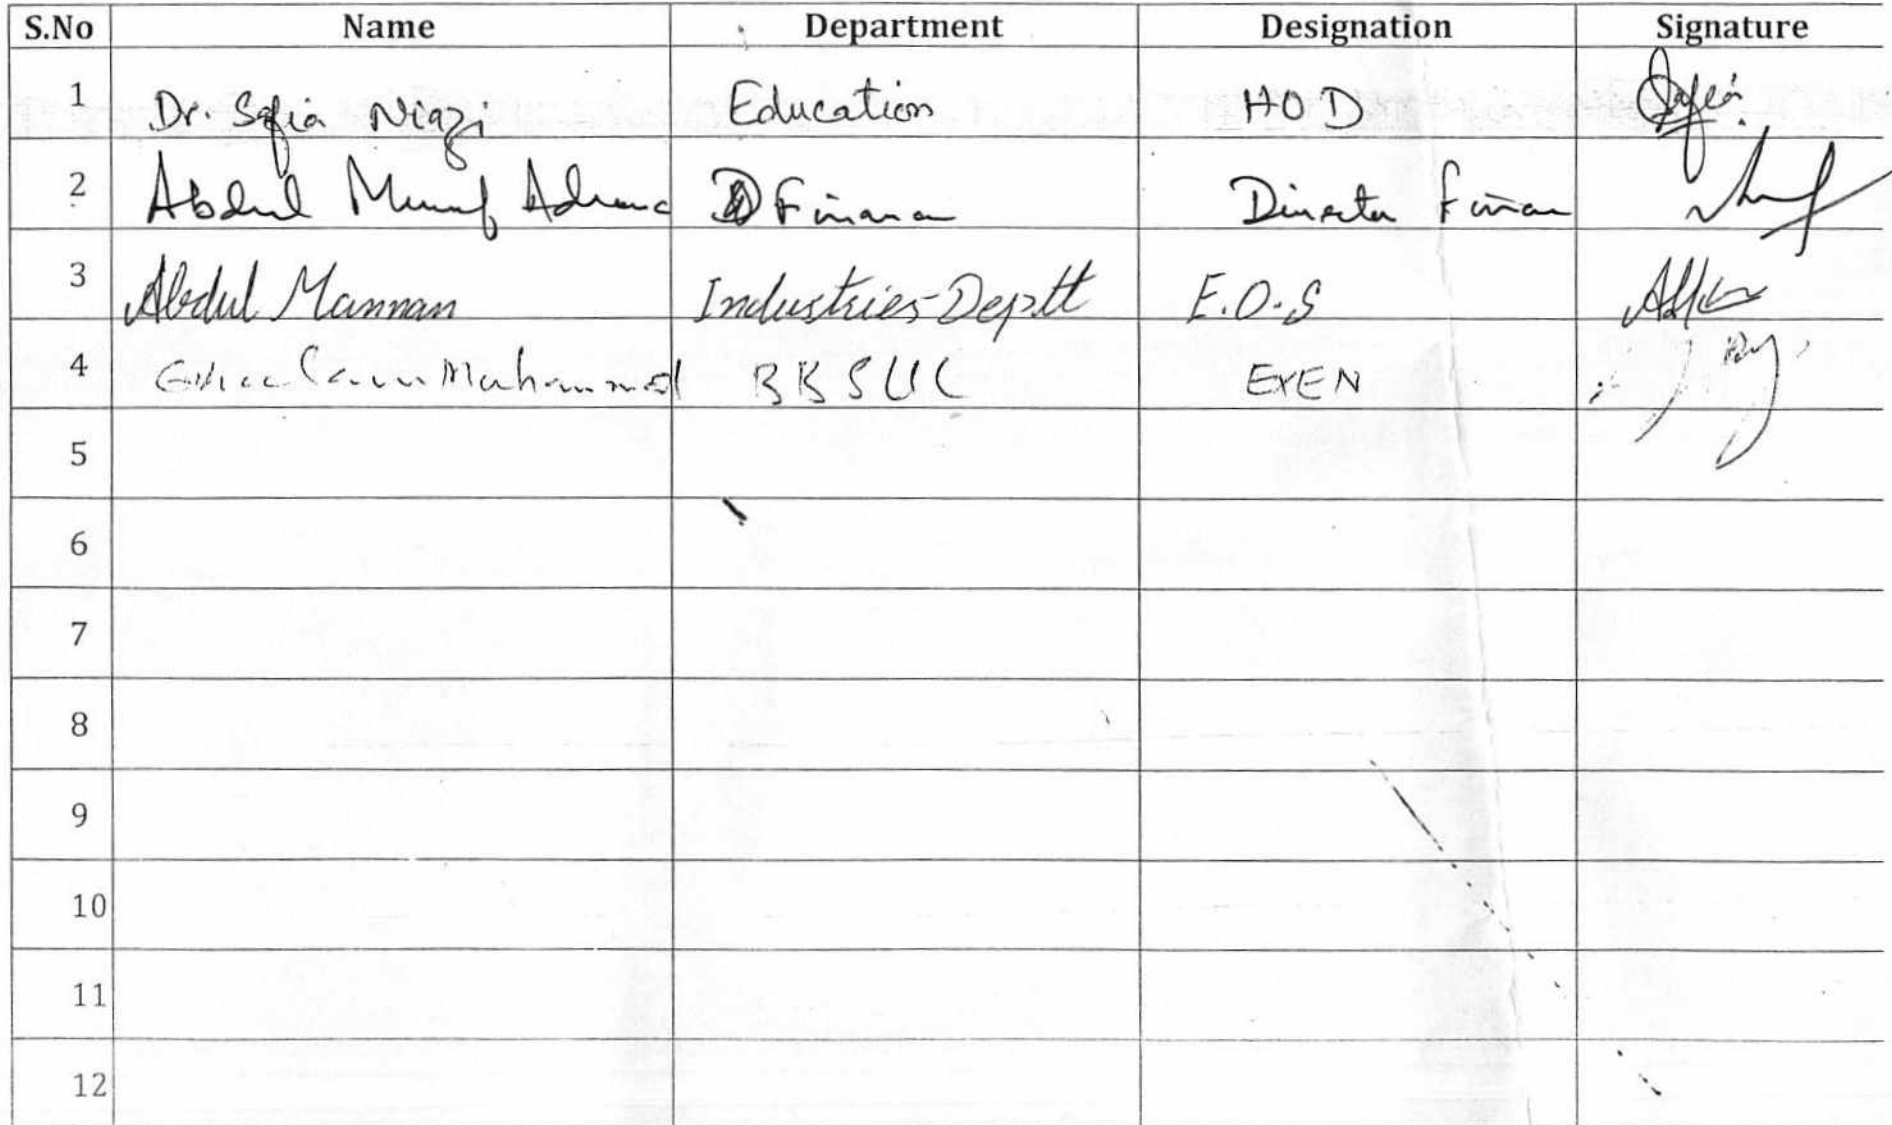 S.No Name Department Designation Signature
1 Dr. Safia Niazi Education HOD Safia
2 Abdul Munaf Finance Director Finan
3 Abdul Mannan Industries Deptt E.O.S
4 Muhammad BBSUL EXEN
5
6
7
8
9
10
11
12